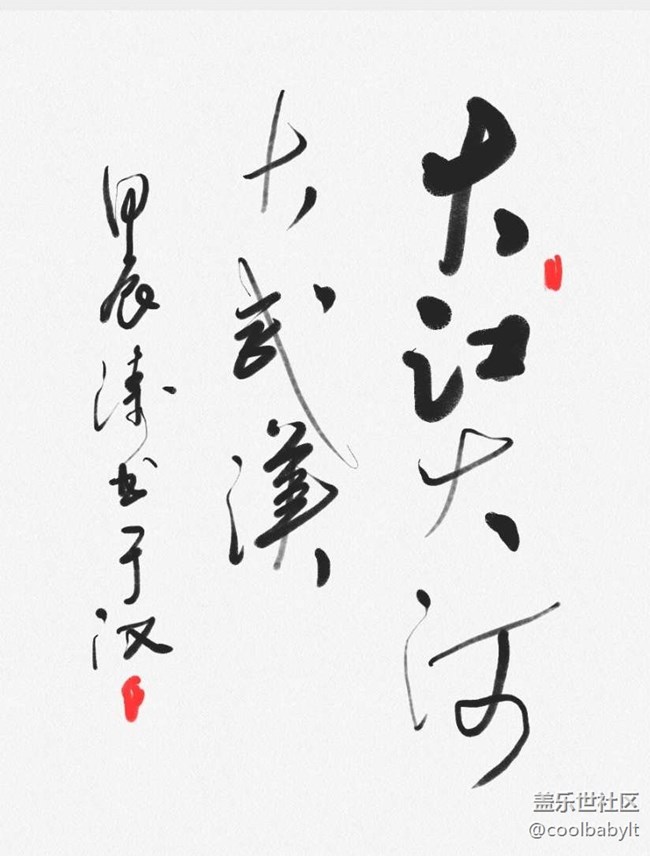 大江大河
大武漢
甲辰涛书于汉
盖乐世社区
@coolbabylt